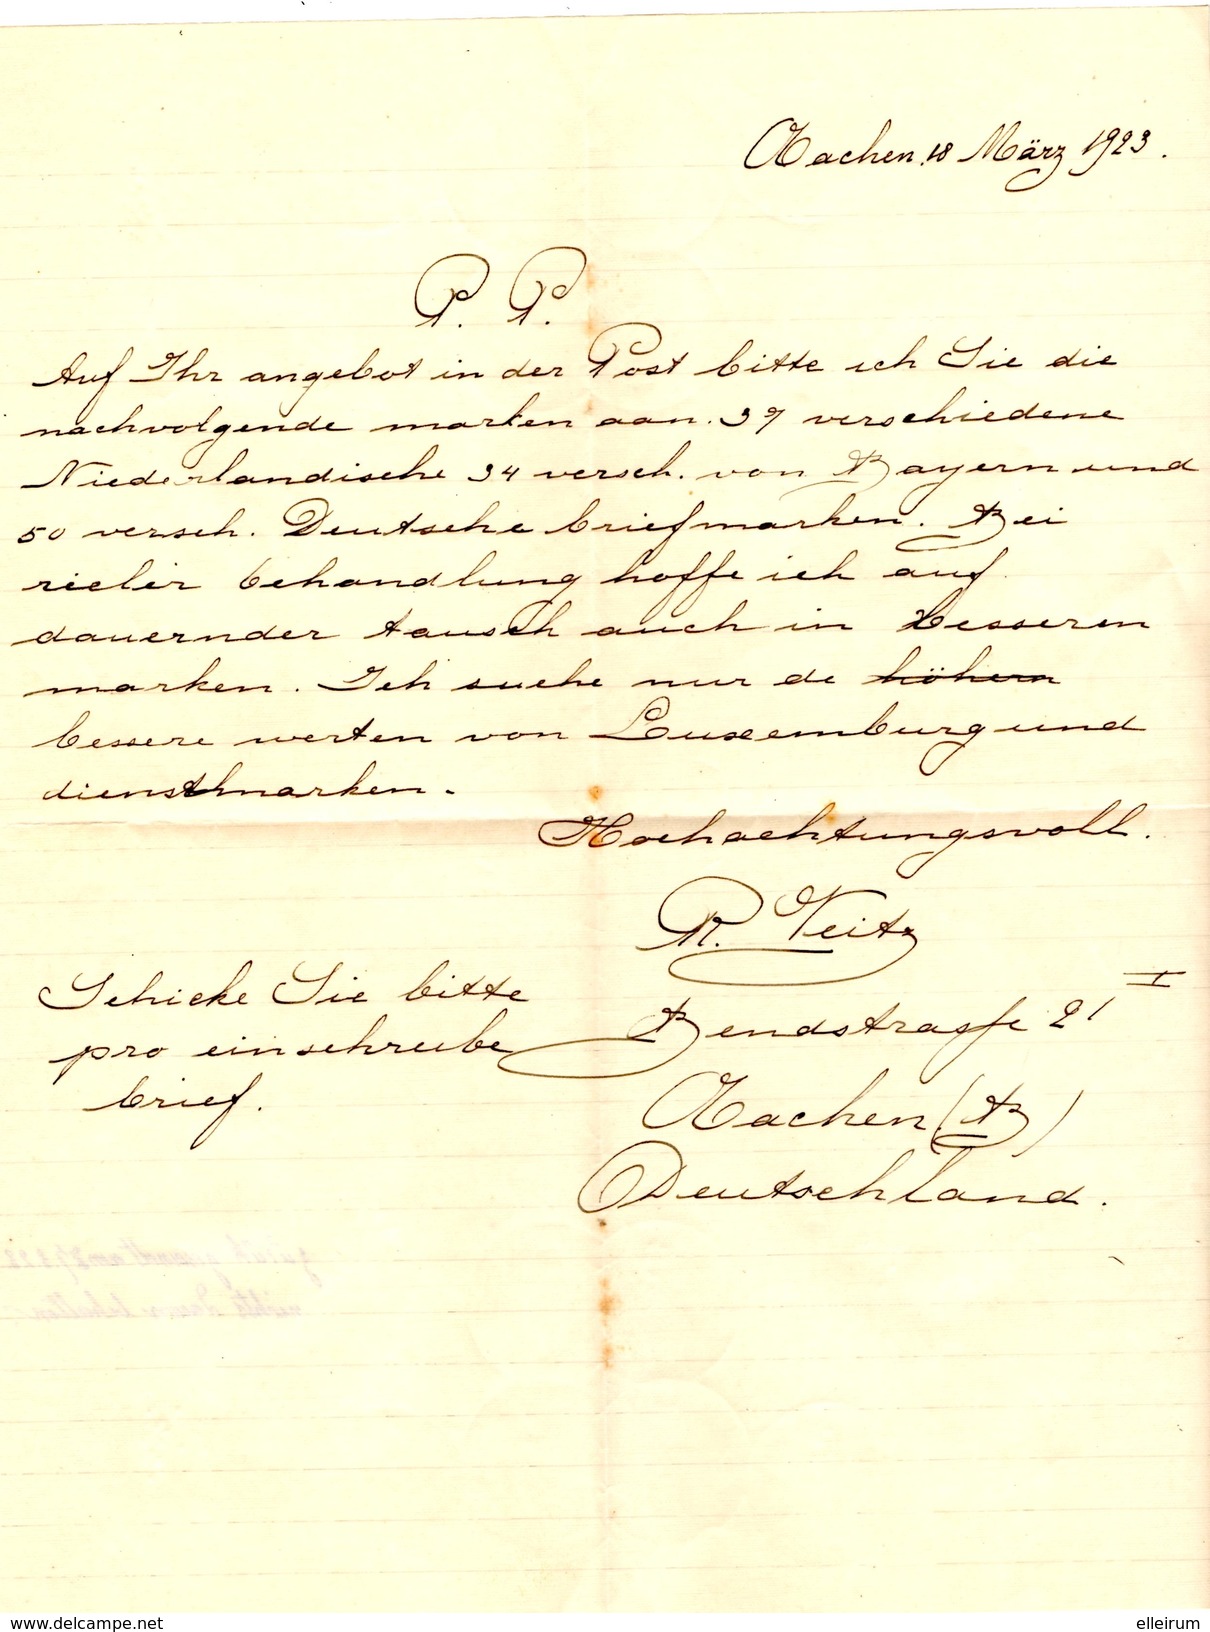 Aachen, 18 März 1923.
P. P.
Auf Ihr angebot in der Post bitte ich Sie die
nachvolgende marken aan. 37 verschiedene
Niederlandische 34 versch. von Bayern und
50 versch. Deutsche briefmarken. Bei
rieler behandlung hoffe ich auf
dauernder tausch auch in besseren
marken. Ich suche nur de höhern
bessere werten von Luxemburg und
dienstmarken.
Hochachtungsvoll.
R. Veitz
Bendstrasse 21 I
Aachen (B)
Deutschland.
Schicke Sie bitte
pro einschreibe
brief.
delcampe.net
elleirum